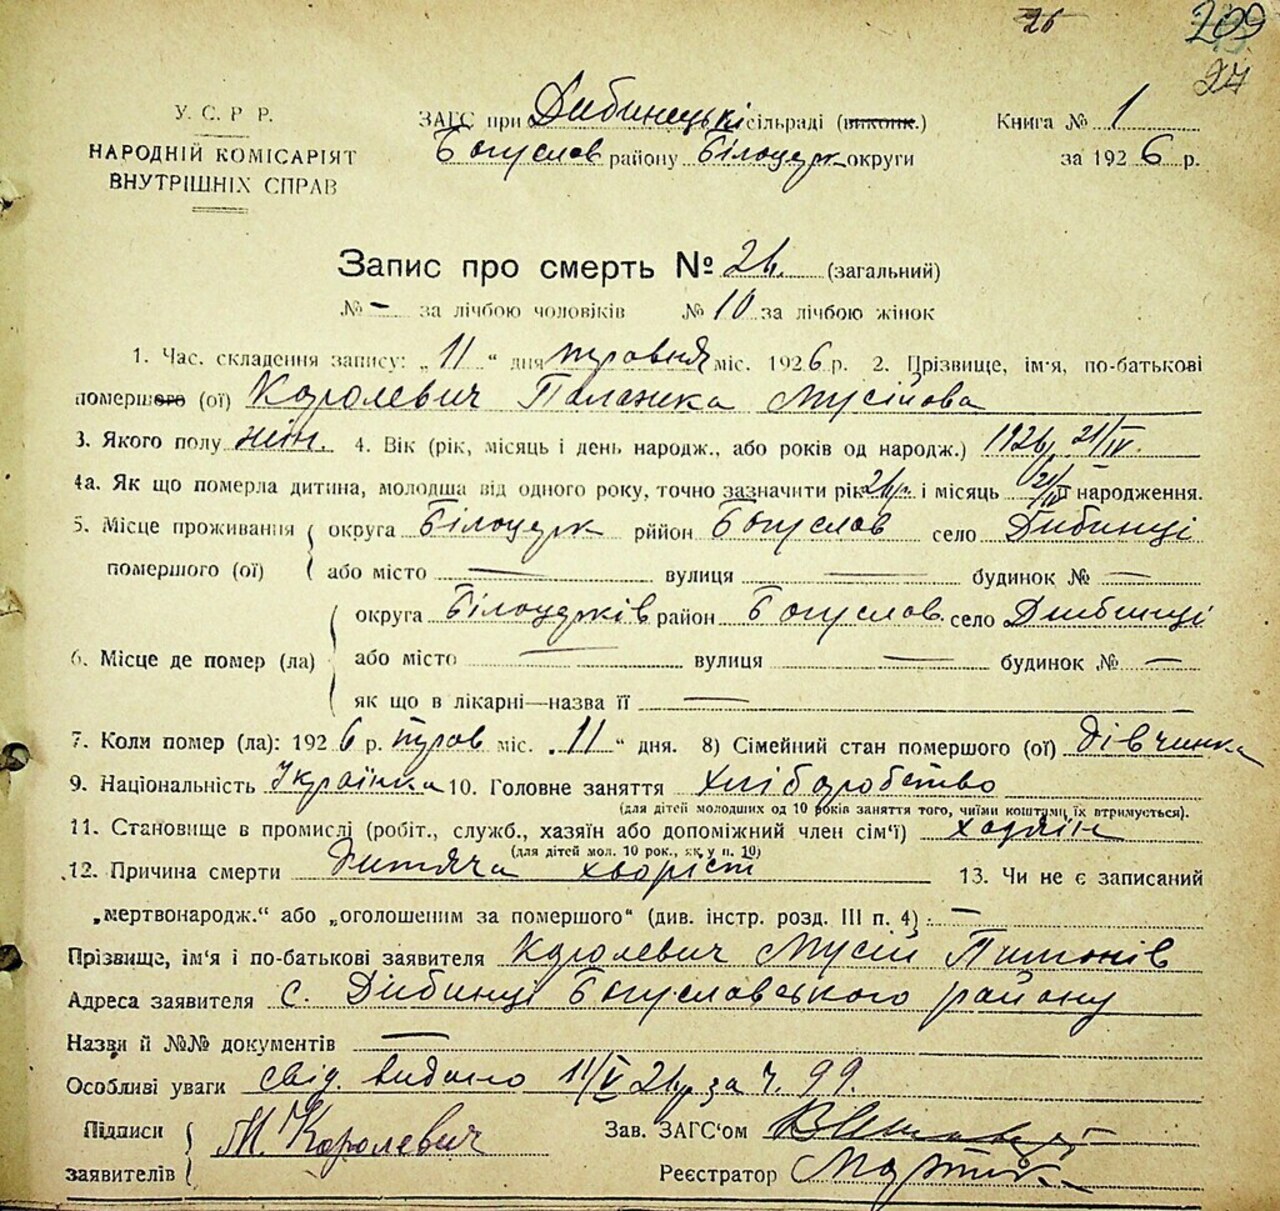 26 209
27
У. С. Р Р.
НАРОДНІЙ КОМІСАРІЯТ
ВНУТРІШНІХ СПРАВ
ЗАГС при Дибинецькі сільраді (виконк.)
Богуслов району Білоцерк округи
Книга № 1
за 1926 р.
Запис про смерть № 26. (загальний)
№ – за лічбою чоловіків № 10 за лічбою жінок
1. Час. складення запису: „11“ дня травня міс. 1926 р. 2. Прізвище, ім'я, по-батькові
помершого (ої) Королевич Палажка Мусійова
3. Якого полу жін. 4. Вік (рік, місяць і день народж., або років од народж.) 1926р 21/IV.
4а. Як що померла дитина, молодша від одного року, точно зазначити рік 26р. і місяць 21/IV народження.
5. Місце проживання помершого (ої) округа Білоцерк рййон Богуслов село Дибинці
або місто — вулиця — будинок № —
6. Місце де помер (ла) округа Білоцерків район Богуслов. село Дибинці
або місто — вулиця — будинок № —
як що в лікарні—назва її —
7. Коли помер (ла): 1926 р. трав міс. „11“ дня. 8) Сімейний стан помершого (ої) дівчинка
9. Національність Українка 10. Головне заняття хліборобство
(для дітей молодших од 10 років заняття того, чиїми коштами їх втримується).
11. Становище в промислі (робіт., служб., хазяїн або допоміжний член сім'ї) хазяїн
(для дітей мол. 10 рок., як у п. 10)
12. Причина смерти Дитяча хворість 13. Чи не є записаний
„мертвонародж.“ або „оголошеним за помершого“ (див. інстр. розд. III п. 4) : —
Прізвище, ім'я і по-батькові заявителя Королевич Мусій Пимонів
Адреса заявителя с. Дибинці Богуславського району
Назви й №№ документів —
Особливі уваги свід. видано 11/V 26р за ч. 99.
Підписи заявителів М. Королевич
Зав. ЗАГС'ом
Реєстратор